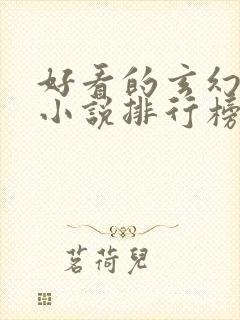 好看的玄幻
小说排行榜
茗荷兒